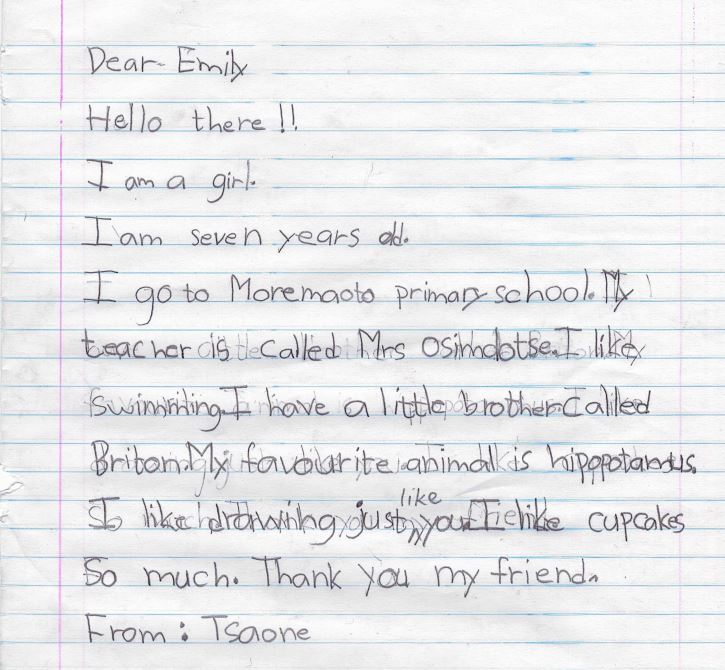 Dear Emily
Hello there !!
I am a girl.
I am seven years old.
I go to Moremaoto primary school. My
teacher is called Mrs I like
swimming. I have a little brother called
Briton. My favourite animal is hippopotamus.
I like drawing just like you. I like cupcakes
So much. Thank you my friend.
From : Tsaone